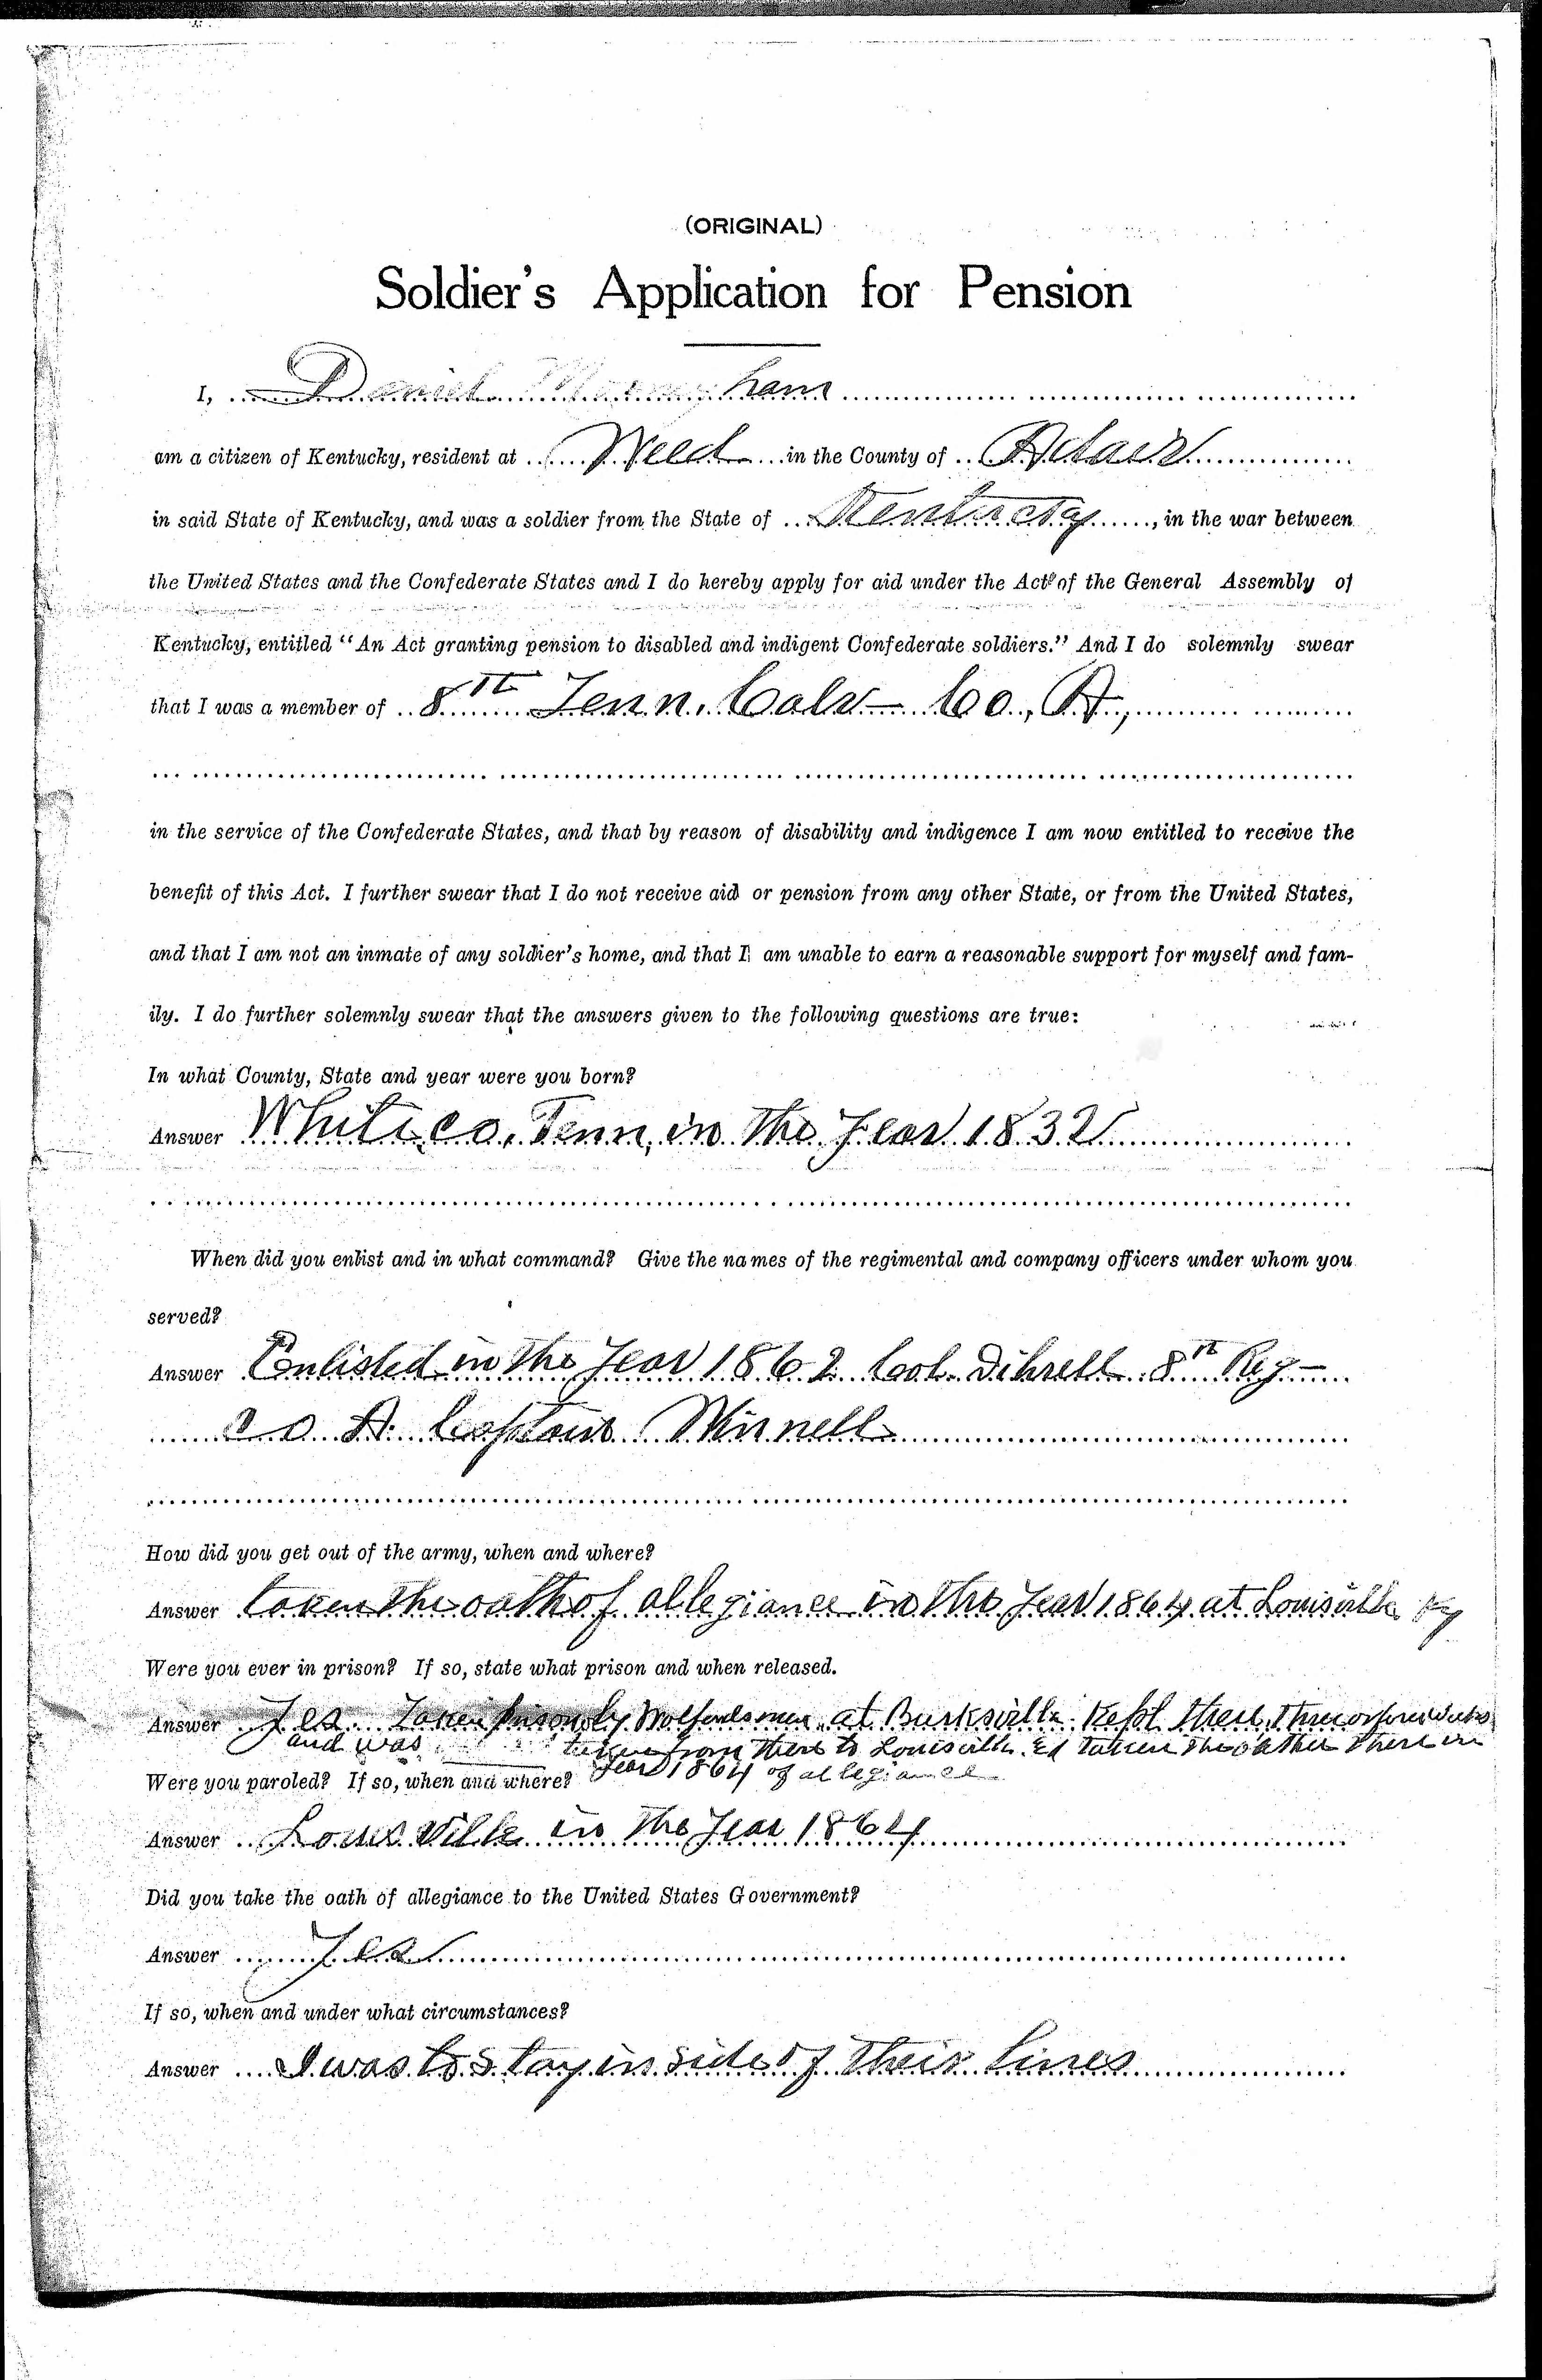 (ORIGINAL)
Soldier's Application for Pension
I, Daniel
am a citizen of Kentucky, resident at Weed in the County of Adair
in said State of Kentucky, and was a soldier from the State of Kentucky, in the war between
the United States and the Confederate States and I do hereby apply for aid under the Act of the General Assembly of
Kentucky, entitled "An Act granting pension to disabled and indigent Confederate soldiers." And I do solemnly swear
that I was a member of 8th Tenn. Calv - Co, A,
in the service of the Confederate States, and that by reason of disability and indigence I am now entitled to receive the
benefit of this Act. I further swear that I do not receive aid or pension from any other State, or from the United States,
and that I am not an inmate of any soldier's home, and that I am unable to earn a reasonable support for myself and fam-
ily. I do further solemnly swear that the answers given to the following questions are true:
In what County, State and year were you born?
Answer White, co. Tenn, in the Year 1832
When did you enlist and in what command? Give the names of the regimental and company officers under whom you
served?
Answer Enlisted in the Year 1862 Col. Dibrell 8th Reg -
co A. Captain
How did you get out of the army, when and where?
Answer taken the oath of allegiance in the Year 1864 at Louisville Ky
Were you ever in prison? If so, state what prison and when released.
Answer Yes Taken Prison by men at Burksville Kept there three or four weeks
and was taken from there to Louisville taken the oath there in
Year 1864 of allegiance
Were you paroled? If so, when and where?
Answer Louisville in the Year 1864
Did you take the oath of allegiance to the United States Government?
Answer Yes
If so, when and under what circumstances?
Answer I was to stay in side of their Lines